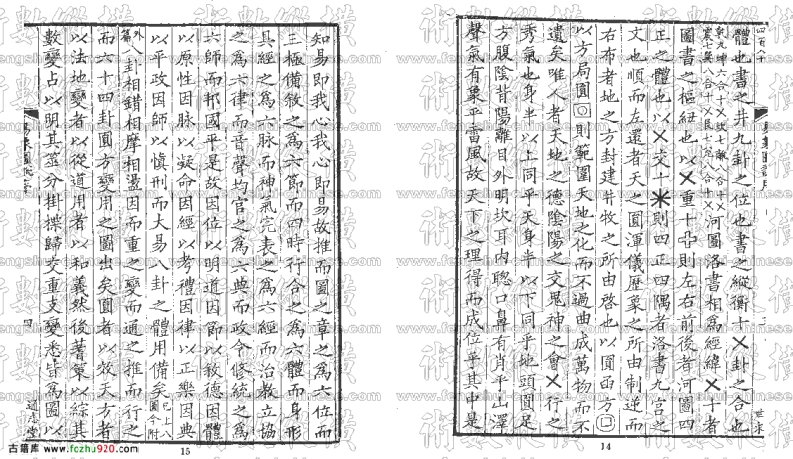 體也書之井九卦之位也書之縱衡十㐅卦之合也
乾九坤六合十㐅坎七離八合十㐅
震七巽八合十㐅艮六兌九合十㐅河圖洛書相為經緯㐅十者
圖書之樞紐也以㐅重十則左右前後者河圖四
正之體也以㐅交十則四正四隅者洛書九宮之
文也順而左還者天之圓渾儀歷象之所由制逆而
右布者地之方封建井牧之所由啓也以圓函方
以方局圓則範圍天地之化而不過曲成萬物而不
遺矣唯人者天地之德陰陽之交鬼神之會㐅行之
秀氣也身半以上同乎天身半以下同乎地頭圓足
方腹陰背陽離目外明坎耳內聰口鼻有肖乎山澤
聲氣有象乎雷風故天下之理得而成位乎其中是
14
知易即我心我心即易故推而圖之章之為六位而
三極備敘之為六節而四時行合之為六體而身形
具經之為六脉而神氣完表之為六經而治教立協
之為六律而音聲均官之為六典而政令修統之為
六師而邦國平是故因位以明道因節以敘德因體
以原性因脉以凝命因經以考禮因律以正樂因典
以平政因師以慎刑而大易八卦之體用備矣已上八圖今附
外篇
八卦相錯相摩相盪因而重之變而通之推而行之
而六十四卦圓方變用之圖出矣圓者以效天方者
以法地變者以從道用者以和義然後蓍策以綜其
數變占以明其筮分掛揲歸交重支變悉皆為圖以
四
通志堂
古籍库 www.fczhu920.com
15